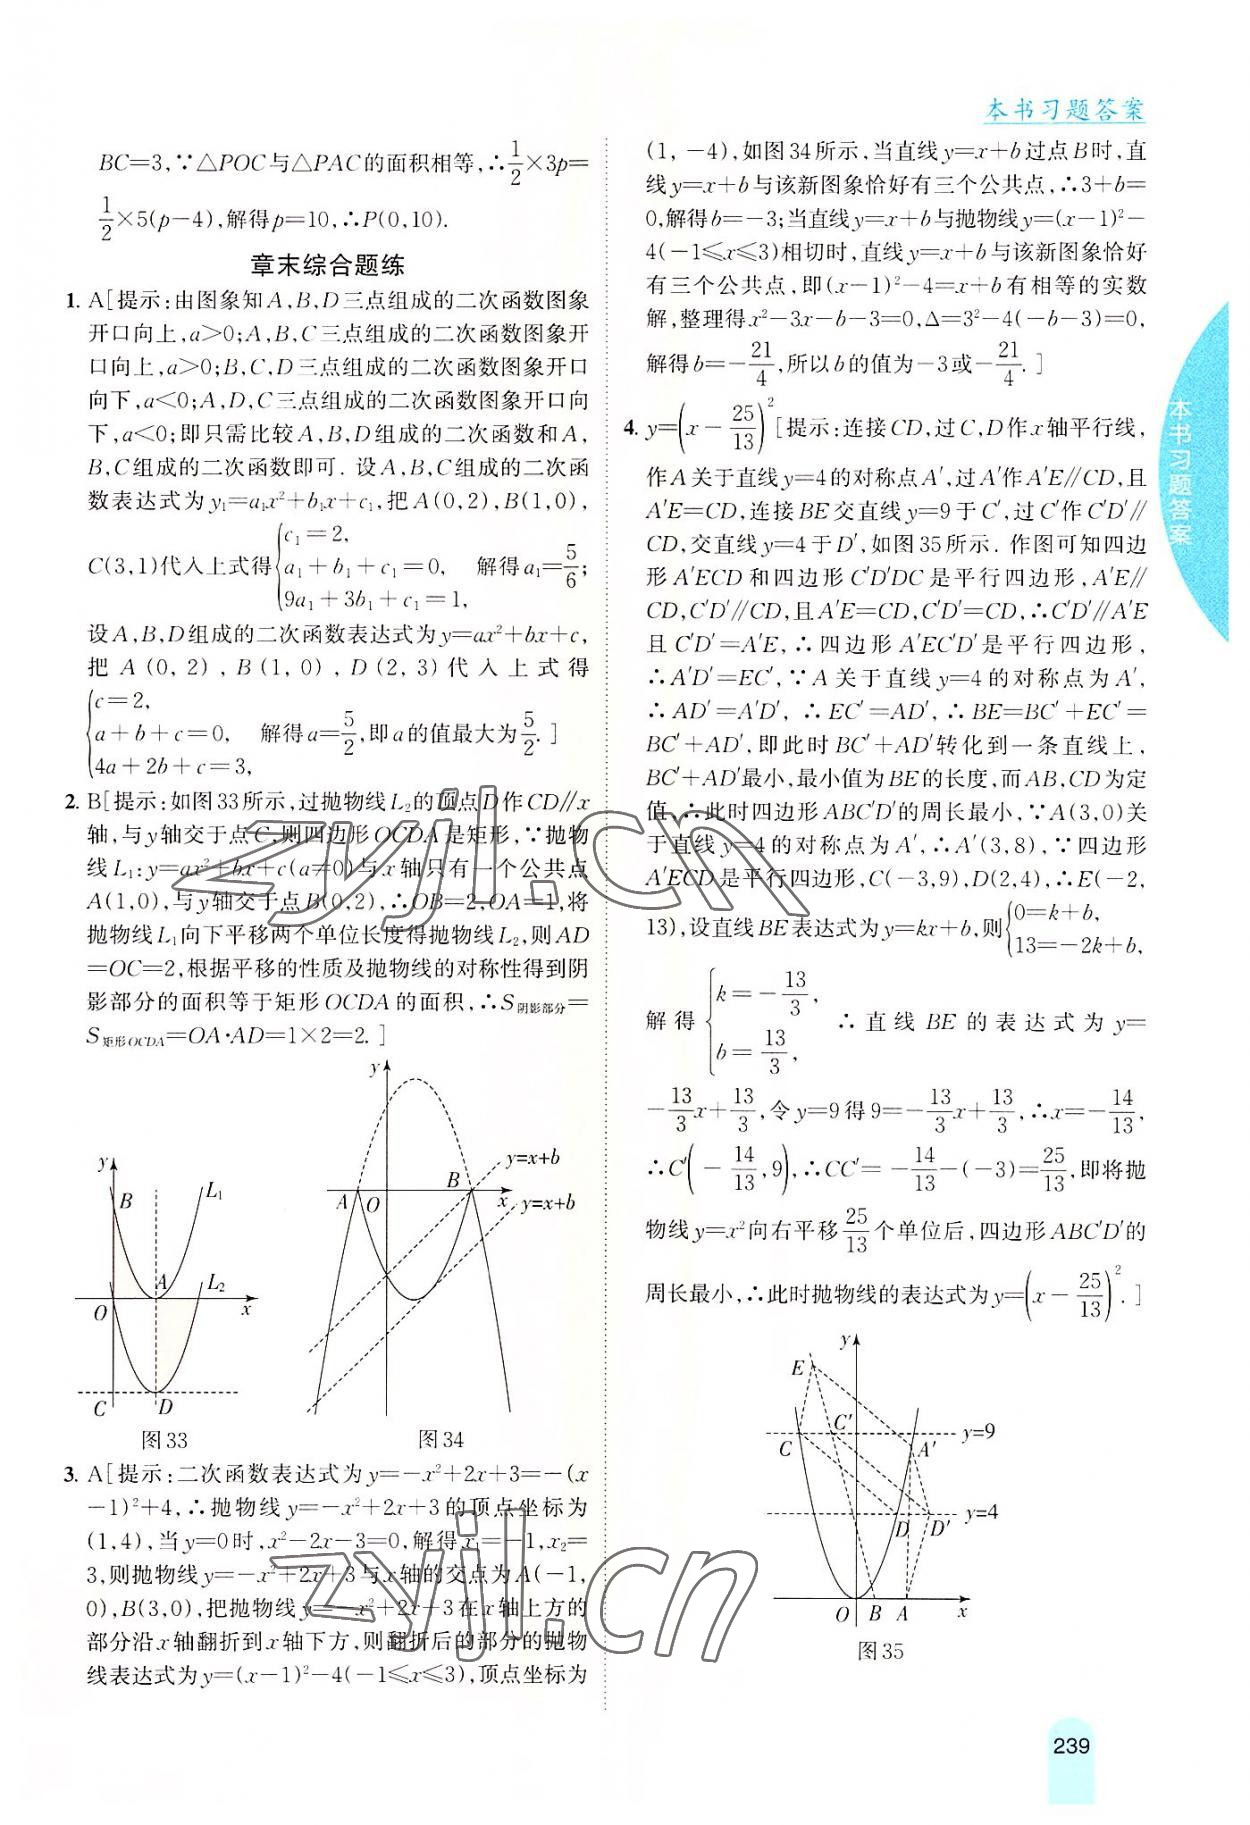 本书习题答案
BC=3,∵△POC与△PAC的面积相等,∴1/2×3p=
1/2×5(p-4),解得p=10,∴P(0,10).
章末综合题练
1. A[提示:由图象知A,B,D三点组成的二次函数图象
开口向上,a>0;A,B,C三点组成的二次函数图象开
口向上,a>0;B,C,D三点组成的二次函数图象开口
向下,a<0;A,D,C三点组成的二次函数图象开口向
下,a<0;即只需比较A,B,D组成的二次函数和A,
B,C组成的二次函数即可. 设A,B,C组成的二次函
数表达式为y₁=a₁x²+b₁x+c₁,把A(0,2),B(1,0),
C(3,1)代入上式得{c₁=2, a₁+b₁+c₁=0, 9a₁+3b₁+c₁=1, 解得a₁=5/6;
设A,B,D组成的二次函数表达式为y=ax²+bx+c,
把A(0,2),B(1,0),D(2,3)代入上式得
{c=2, a+b+c=0, 4a+2b+c=3, 解得a=5/2,即a的值最大为5/2.]
2. B[提示:如图33所示,过抛物线L₂的顶点D作CD∥x
轴,与y轴交于点C,则四边形OCDA是矩形,∵抛物
线L₁:y=ax²+bx+c(a≠0)与x轴只有一个公共点
A(1,0),与y轴交于点B(0,2),∴OB=2,OA=1,将
抛物线L₁向下平移两个单位长度得抛物线L₂,则AD
=OC=2,根据平移的性质及抛物线的对称性得到阴
影部分的面积等于矩形OCDA的面积,∴S阴影部分=
S矩形OCDA=OA·AD=1×2=2.]
y
B
L₁
A
L₂
O
x
C
D
图33
y
y=x+b
B
A
O
x
y=x+b
图34
3. A[提示:二次函数表达式为y=-x²+2x+3=-(x
-1)²+4,∴抛物线y=-x²+2x+3的顶点坐标为
(1,4),当y=0时,x²-2x-3=0,解得x₁=-1,x₂=
3,则抛物线y=-x²+2x+3与x轴的交点为A(-1,
0),B(3,0),把抛物线y=-x²+2x+3在x轴上方的
部分沿x轴翻折到x轴下方,则翻折后的部分的抛物
线表达式为y=(x-1)²-4(-1≤x≤3),顶点坐标为
(1,-4),如图34所示,当直线y=x+b过点B时,直
线y=x+b与该新图象恰好有三个公共点,∴3+b=
0,解得b=-3;当直线y=x+b与抛物线y=(x-1)²-
4(-1≤x≤3)相切时,直线y=x+b与该新图象恰好
有三个公共点,即(x-1)²-4=x+b有相等的实数
解,整理得x²-3x-b-3=0,Δ=3²-4(-b-3)=0,
解得b=-21/4,所以b的值为-3或-21/4.]
4. y=(x-25/13)²[提示:连接CD,过C,D作x轴平行线,
作A关于直线y=4的对称点A′,过A′作A′E∥CD,且
A′E=CD,连接BE交直线y=9于C′,过C′作C′D′∥
CD,交直线y=4于D′,如图35所示. 作图可知四边
形A′ECD和四边形C′D′DC是平行四边形,A′E∥
CD,C′D′∥CD,且A′E=CD,C′D′=CD,∴C′D′∥A′E
且C′D′=A′E,∴四边形A′EC′D′是平行四边形,
∴A′D′=EC′,∵A关于直线y=4的对称点为A′,
∴AD′=A′D′,∴EC′=AD′,∴BE=BC′+EC′=
BC′+AD′,即此时BC′+AD′转化到一条直线上,
BC′+AD′最小,最小值为BE的长度,而AB,CD为定
值,∴此时四边形ABC′D′的周长最小,∵A(3,0)关
于直线y=4的对称点为A′,∴A′(3,8),∵四边形
A′ECD是平行四边形,C(-3,9),D(2,4),∴E(-2,
13),设直线BE表达式为y=kx+b,则{0=k+b, 13=-2k+b,
解得{k=-13/3, b=13/3, ∴直线BE的表达式为y=
-13/3x+13/3,令y=9得9=-13/3x+13/3,∴x=-14/13,
∴C′(-14/13,9),∴CC′=-14/13-(-3)=25/13,即将抛
物线y=x²向右平移25/13个单位后,四边形ABC′D′的
周长最小,∴此时抛物线的表达式为y=(x-25/13)².]
y
E
C′
y=9
C
A′
y=4
D
D′
O
B
A
x
图35
本书习题答案
239
zyjl.cn
zyjl.cn